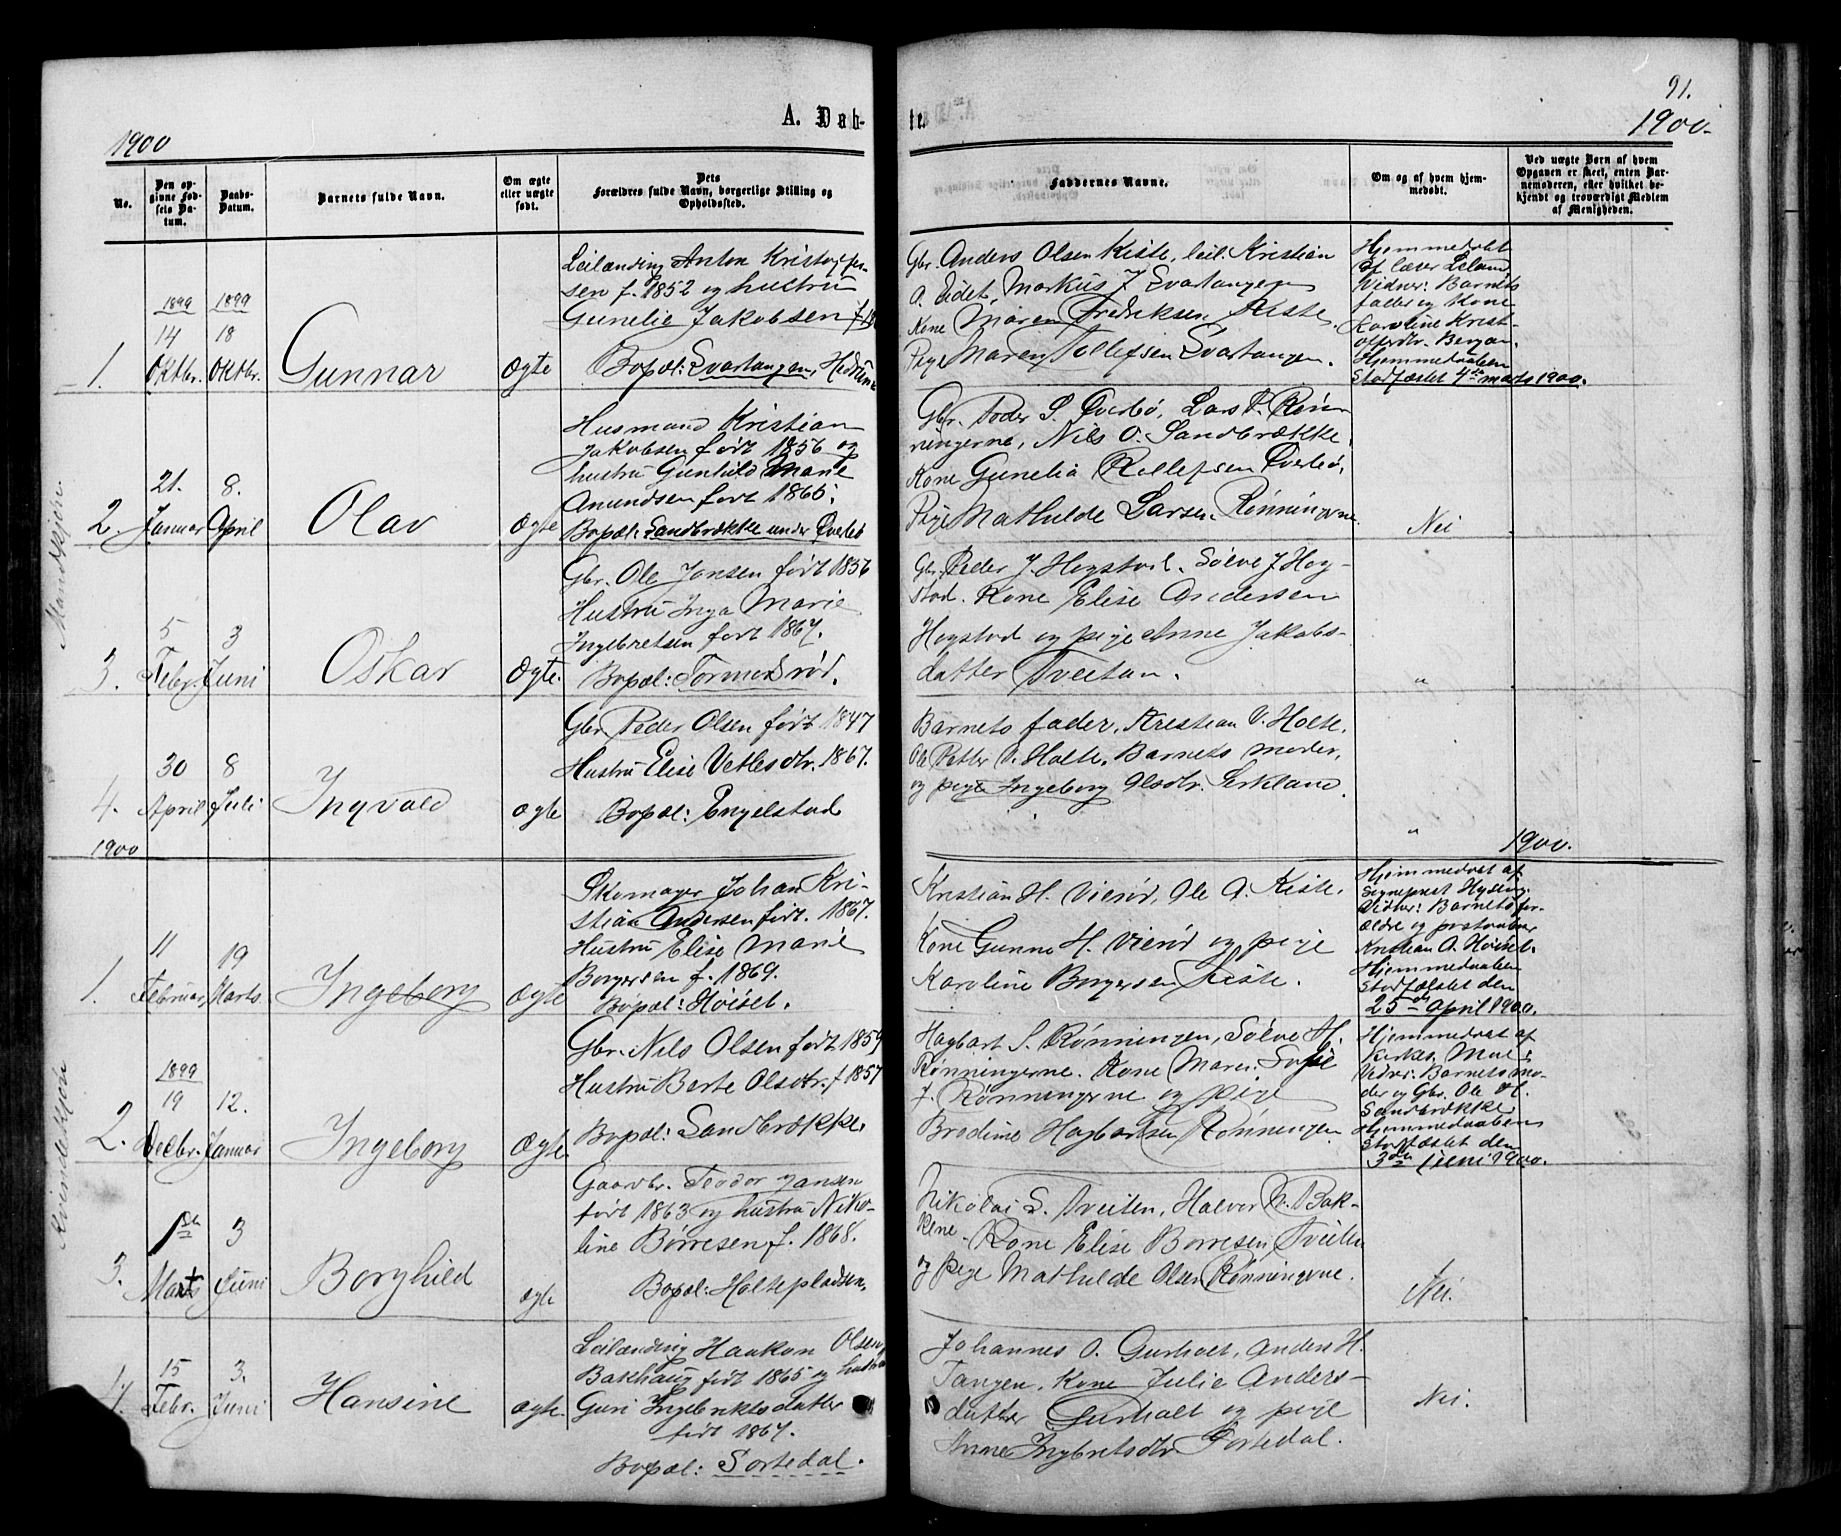 91.
1900
A. Døb-
te.
1900.
No.
Den op-
givne Fød-
sels Da-
tum.
Daabs-
Datum.
Barnets fulde Navn.
Om ægte
eller uægte
født.
Dets
Forældres fulde Navn, borgerlige Stilling og
Opholdssted.
Faddernes Navne.
Om og af hvem hjem-
medøbt.
Ved uægte Børn af hvem
Opgaven er skeet, enten Bar-
nemoderen, eller hvilket be-
kjendt og troværdigt Medlem
af Menigheden.
Mandkjøn.
1.
1899
14
Oktbr.
1899
18
Oktbr.
Gunnar
Ægte
Leilænding Anton Kristofer-
sen f. 1852 og hustru
Gunelie Jakobsen
Bopæl: Svartangen,
Gbr. Anders Olsen Kiste, leil. Kristian
O. Eidet, Markus J Svartangen
Kone Maren Fredriksen Kiste,
Pige Maren Tollefsen Svartangen.
Hjemmedøbt
af lærer
Vidner: Barnets
fader og Kone
Karoline Krist-
offerdtr. Bergan.
Hjemmedaaben
Stadfæstet 4de marts 1900.
2.
21.
Januar
8.
April
Olav
Ægte
Husmand Kristian
Jakobsen født 1856 og
hustru Gunhild Marie
Amundsen født 1866.
Bopæl: Sandbrække under Øverbø
Gbr. Peder S. Øverbø, Lars P. Røn-
ningerne, Nils O. Sandbrække,
Kone Gunelia Rollefsen Øverbø,
Pige Mathilde Larsen Rønningerne.
Nei
3.
5
Febr.
3
Juni
Oskar
Ægte.
Gbr. Ole Jansen født 1856
Hustru Inga Marie
Ingebretsen født 1867.
Bopæl: Tormodsrød.
Gbr. Peder J. Hogstad. Sølve J Hog-
stad. Kone Elise Andersen
Hogstad og pige Anne Jakobs-
datter Tveitan.
"
4.
30
April
8
Juli
Ingvald
ægte
Gbr. Peder Olsen født 1847
Hustru Elise Vetlesdtr. 1867.
Bopæl: Engelstad
Barnets fader, Kristian V. Holte,
Ole Petter V. Holte, Barnets moder,
og pige Ingeborg Olsdtr.
"
1900
1900.
Kvindekjøn
1.
11
Februar
19
Marts
Ingeborg
Ægte
Skomager Johan Kri-
stian Andersen født. 1867.
Hustru Elise Marie
Borgersen f. 1869.
Bopæl: Høiset.
Kristian H. Vierød, Ole A. Kiste.
Kone Gunne H. Vierød og pige
Karoline Borgersen Kiste.
Hjemmedøbt af
Sogneprest
Vidner: Barnets for-
ældre og
Kristian A. Høiset.
Hjemmedaaben
Stadfæstet den
25de April 1900.
2.
1899
19
Decbr.
12.
Januar
Ingeborg
Ægte.
Gbr. Nils Olsen født 1859
Hustru Berte Olsdtr. f 1857
Bopæl: Sandbrække,
Hagbart S. Rønningen, Sølve H.
Rønningerne. Kone Maren Sofie
J. Rønningerne og pige
Bredine Hagbartsen Rønningen
Hjemmedøbt af
Kirks. Moe:
Vidner: Barnets mo-
der og Gbr. Ole H.
Sandbrække
Hjemmedaaben
Stadfæstet den
3die Juni 1900.
3.
1ste
Marts
3
Juni
Borghild
ægte
Gaardbr. Teodor Jansen
født 1863 og hustru Niko-
line Børresen f. 1868.
Bopæl: Holtepladsen,
Nikolai S. Tveiten, Halvor N. Bak-
kene. Kone Elise Borresen Tveiten
og pige Mathilde Olsen Rønningerne.
Nei.
4.
15
Febr.
3.
Juni
Hansine
ægte.
Leilænding Haakon Olsen
Bakhaug født 1865 og hustru
Guri Ingebriktsdatter
født 1867.
Bopæl: Sortedal.
Johannes O. Gurholt, Anders H.
Tangen, Kone Julie Anders-
datter Gurholt og pige
Anne Ingebretsdtr Sortedal.
Nei.